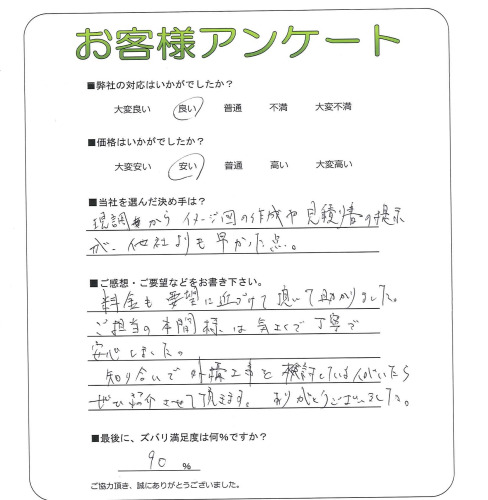 お客様アンケート
■弊社の対応はいかがでしたか？
大変良い 良い 普通 不満 大変不満
■価格はいかがでしたか？
大変安い 安い 普通 高い 大変高い
■当社を選んだ決め手は？
現調から イメージ図の作成や見積書の提示
が、他社よりも早かった点。
■ご感想・ご要望などをお書き下さい。
料金も要望に近づけて頂いて助かりました。
ご担当の本間様は気さくで丁寧で
安心しました。
知り合いで外構工事を検討している人がいたら
ぜひ紹介させて頂きます。ありがとうございました。
■最後に、ズバリ満足度は何％ですか？
90 ％
ご協力頂き、誠にありがとうございました。